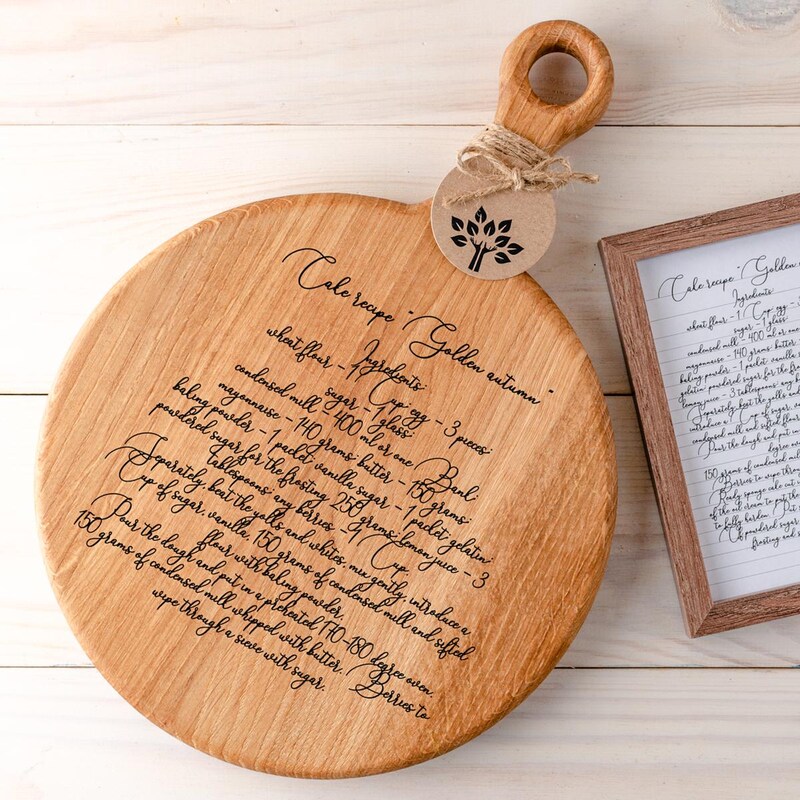 Cake recipe "Golden autumn"
Ingredients:
wheat flour - 1 Cup; egg - 3 pieces;
sugar - 1 glass;
condensed milk - 400 ml or one Bank;
mayonnaise - 140 grams; butter - 150 grams;
baking powder - 1 packet; vanilla sugar - 1 packet; gelatin;
powdered sugar for the frosting 250 grams; lemon juice - 3
tablespoons; any berries - 1 Cup.
Separately beat the yolks and whites, mix gently, introduce a
Cup of sugar, vanilla, 150 grams of condensed milk and sifted
flour with baking powder.
Pour the dough and put in a preheated 170-180 degree oven.
150 grams of condensed milk whipped with butter. Berries to
wipe through a sieve with sugar.
Cake recipe "Golden
Ingredients:
wheat flour - 1 Cup; egg -
sugar - 1 glass;
condensed milk - 400 ml or on
mayonnaise - 140 grams; butter
baking powder - 1 packet; vanilla s
powdered sugar for the frosti
lemon juice - 3 tablespoons; any be
Separately beat the yolks and
introduce a Cup of sugar, vanill
condensed milk and sifted flour
Pour the dough and put in
degree ove
150 grams of condensed mil
Berries to wipe throug
Ready sponge cake cut
of the oil cream to put the
to fully harden. Put
of powdered sugar
frosting and s